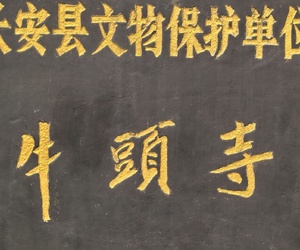 长安县文物保护单位
牛頭寺